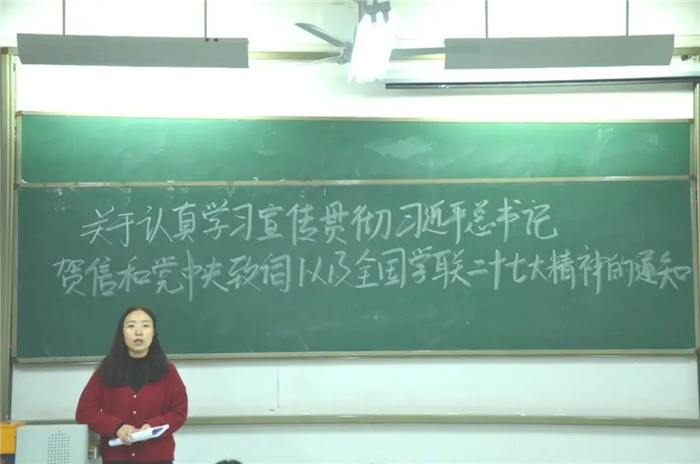 关于认真学习宣传贯彻习近平总书记
贺信和党中央致词以及全国学联二十七大精神的通知